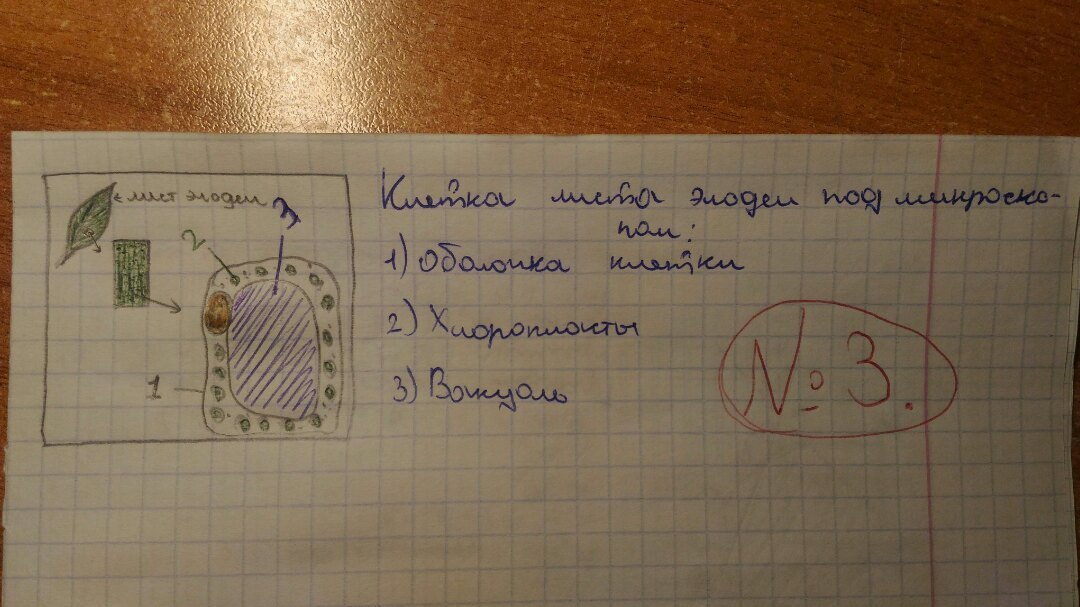 лист элодеи
3
2
1
Клетка листа элодеи под микроско-
пом:
1) Оболочка клетки
2) Хлоропласты
3) Вакуоль
№ 3.